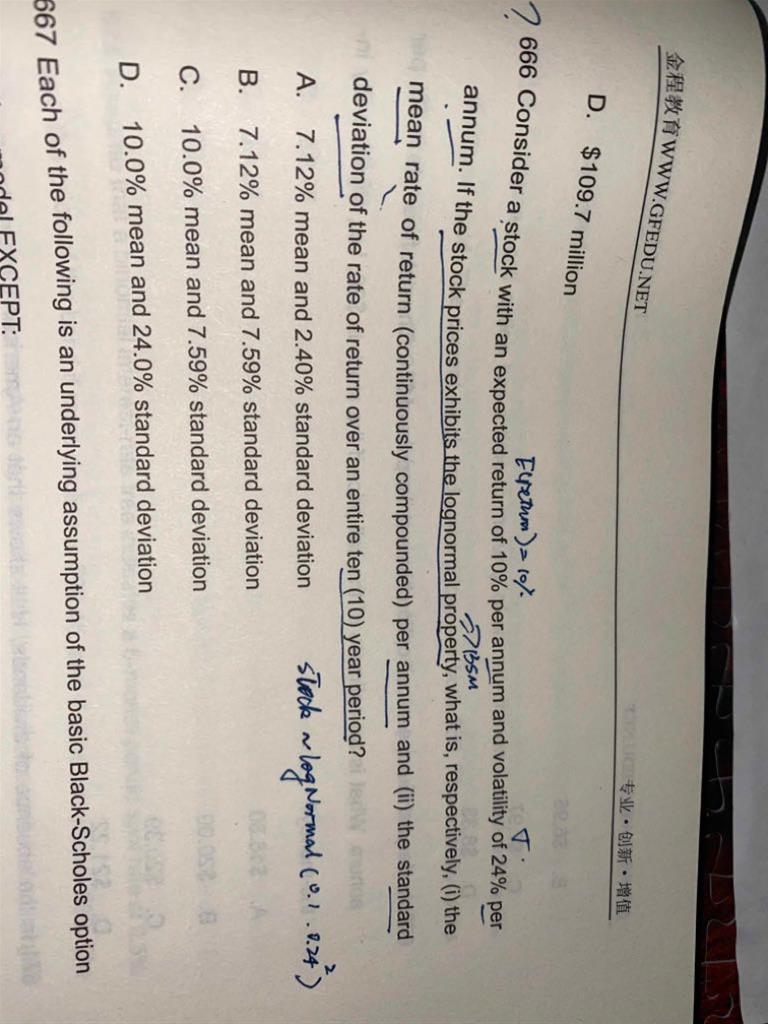 金程教育WWW.GFEDU.NET
专业・创新・增值
D. $109.7 million
E(return) = 10%
σ.
? 666 Consider a stock with an expected return of 10% per annum and volatility of 24% per
annum. If the stock prices exhibits the lognormal property, what is, respectively, (i) the
=> BSM
mean rate of return (continuously compounded) per annum and (ii) the standard
deviation of the rate of return over an entire ten (10) year period?
A. 7.12% mean and 2.40% standard deviation
stock ~ logNormal (0.1, 0.24²)
B. 7.12% mean and 7.59% standard deviation
C. 10.0% mean and 7.59% standard deviation
D. 10.0% mean and 24.0% standard deviation
667 Each of the following is an underlying assumption of the basic Black-Scholes option
model EXCEPT: